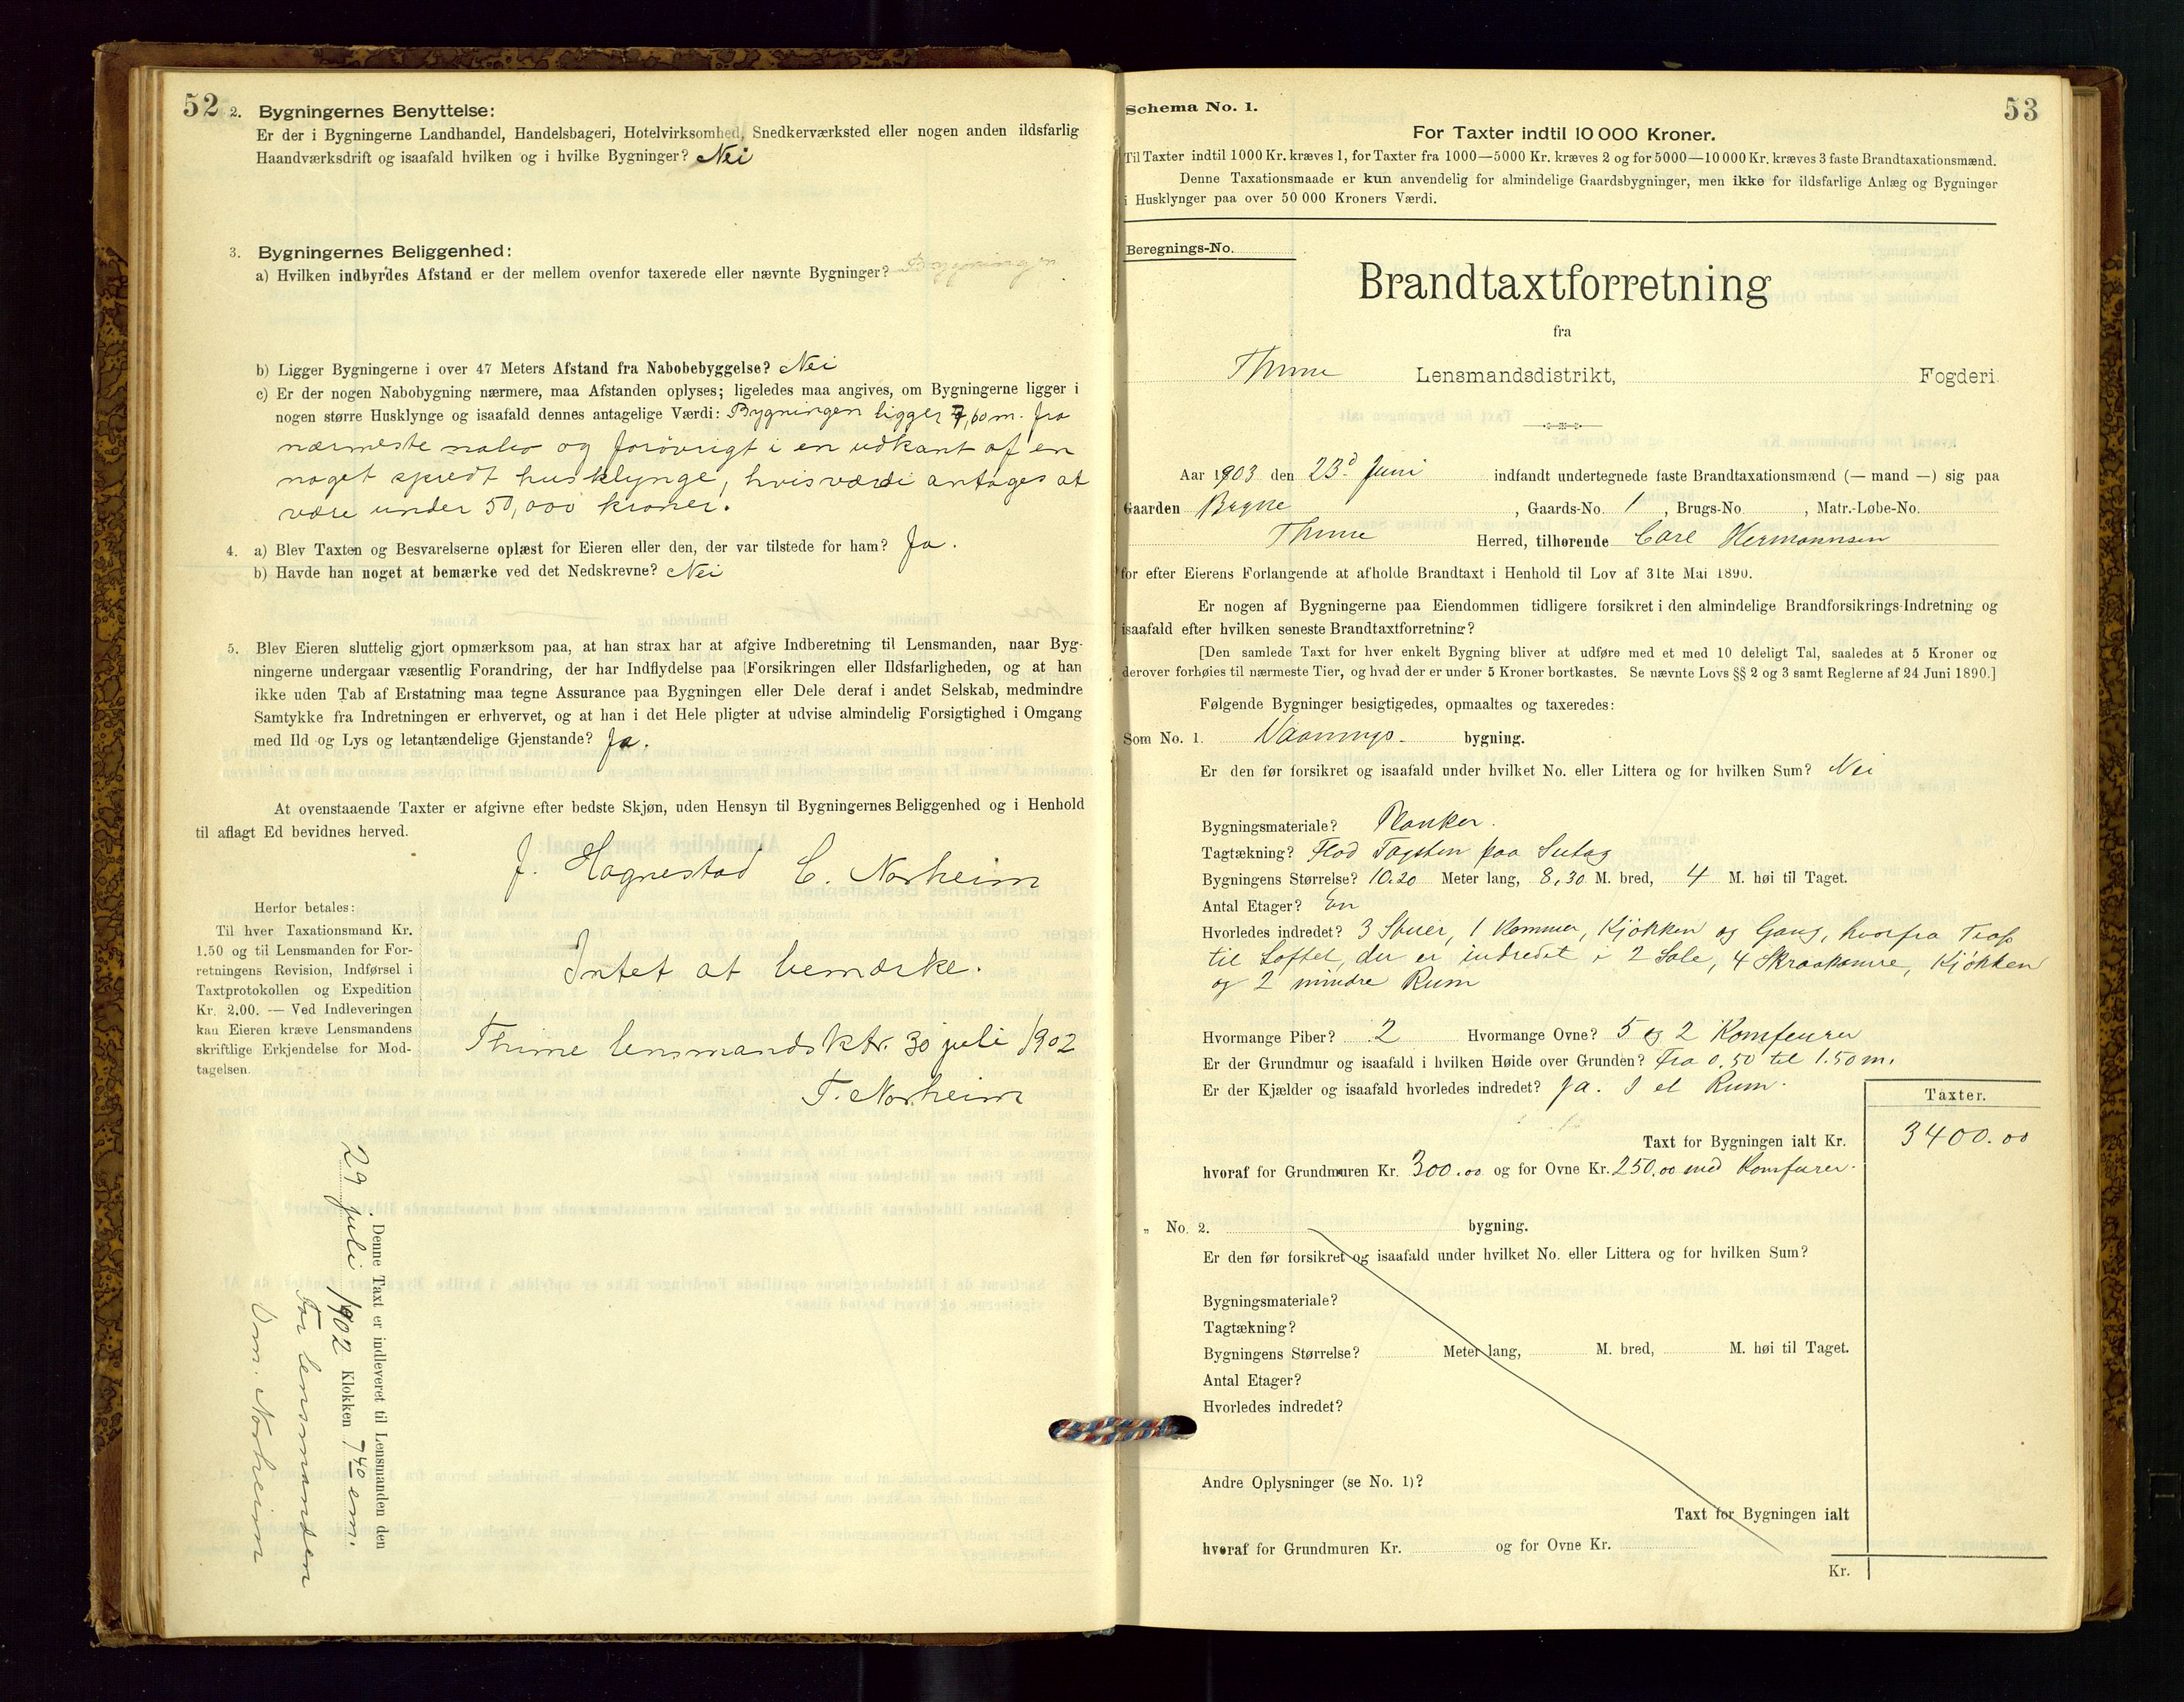 52
2. Bygningernes Benyttelse:
Er der i Bygningerne Landhandel, Handelsbageri, Hotelvirksomhed, Snedkerværksted eller nogen anden ildsfarlig
Haandværksdrift og isaafald hvilken og i hvilke Bygninger? Nei
3. Bygningernes Beliggenhed:
a) Hvilken indbyrdes Afstand er der mellem ovenfor taxerede eller nævnte Bygninger? Bygningen
b) Ligger Bygningerne i over 47 Meters Afstand fra Nabobebyggelse? Nei
c) Er der nogen Nabobygning nærmere, maa Afstanden oplyses; ligeledes maa angives, om Bygningerne ligger i
nogen større Husklynge og isaafald dennes antagelige Værdi: Bygningen ligger 7,60 m. fra
nærmeste nabo og forøvrigt i en udkant af en
noget spredt husklynge, hvis værdi antages at
være under 50,000 kroner.
4. a) Blev Taxten og Besvarelserne oplæst for Eieren eller den, der var tilstede for ham? Ja.
b) Havde han noget at bemærke ved det Nedskrevne? Nei
5. Blev Eieren sluttelig gjort opmærksom paa, at han strax har at afgive Indberetning til Lensmanden, naar Byg-
ningerne undergaar væsentlig Forandring, der har Indflydelse paa Forsikringen eller Ildsfarligheden, og at han
ikke uden Tab af Erstatning maa tegne Assurance paa Bygningen eller Dele deraf i andet Selskab, medmindre
Samtykke fra Indretningen er erhvervet, og at han i det Hele pligter at udvise almindelig Forsigtighed i Omgang
med Ild og Lys og letantændelige Gjenstande? Ja.
At ovenstaaende Taxter er afgivne efter bedste Skjøn, uden Hensyn til Bygningernes Beliggenhed og i Henhold
til aflagt Ed bevidnes herved.
J. Hognestad C. Norheim
Herfor betales:
Til hver Taxationsmand Kr.
1.50 og til Lensmanden for For-
retningens Revision, Indførsel i
Taxtprotokollen og Expedition
Kr. 2.00. — Ved Indleveringen
kan Eieren kræve Lensmandens
skriftlige Erkjendelse for Mod-
tagelsen.
Intet at bemærke.
Thime lensmandsktr. 30 juli 1902
T. Norheim
Denne Taxt er indleveret til Lensmanden den
29 juli 1902 Klokken 7 40 em.
For lensmanden
Om. Norheim
53
Schema No. 1.
For Taxter indtil 10 000 Kroner.
Til Taxter indtil 1000 Kr. kræves 1, for Taxter fra 1000—5000 Kr. kræves 2 og for 5000—10 000 Kr. kræves 3 faste Brandtaxationsmænd.
Denne Taxationsmaade er kun anvendelig for almindelige Gaardsbygninger, men ikke for ildsfarlige Anlæg og Bygninger
i Husklynger paa over 50 000 Kroners Værdi.
Beregnings-No.
Brandtaxtforretning
fra
Thime Lensmandsdistrikt, Fogderi
Aar 1903 den 23d Juni indfandt undertegnede faste Brandtaxationsmænd (— mand —) sig paa
Gaarden Bryne, Gaards-No. 1, Brugs-No. , Matr.-Løbe-No.
Thime Herred, tilhørende Carl Hermannsen
for efter Eierens Forlangende at afholde Brandtaxt i Henhold til Lov af 31te Mai 1890.
Er nogen af Bygningerne paa Eiendommen tidligere forsikret i den almindelige Brandforsikrings-Indretning og
isaafald efter hvilken seneste Brandtaxtforretning?
[Den samlede Taxt for hver enkelt Bygning bliver at udføre med et med 10 deleligt Tal, saaledes at 5 Kroner og
derover forhøies til nærmeste Tier, og hvad der er under 5 Kroner bortkastes. Se nævnte Lovs §§ 2 og 3 samt Reglerne af 24 Juni 1890.]
Følgende Bygninger besigtigedes, opmaaltes og taxeredes:
Som No. 1. Vaanings- bygning.
Er den før forsikret og isaafald under hvilket No. eller Littera og for hvilken Sum? Nei
Bygningsmateriale? Planker.
Tagtækning? Flad Tagsten paa Sutag
Bygningens Størrelse? 10.20 Meter lang, 8,30 M. bred, 4 M. høi til Taget.
Antal Etager? En
Hvorledes indredet? 3 Stuer, 1 Kammer, Kjøkken og Gang, hvorfra Trap
til Loftet, der er indredet i 2 Sale, 4 Skraakamre, Kjøkken
og 2 mindre Rum
Hvormange Piber? 2 Hvormange Ovne? 5 og 2 Komfeurer
Er der Grundmur og isaafald i hvilken Høide over Grunden? Fra 0.50 til 1.50 m.
Er der Kjælder og isaafald hvorledes indredet? Ja. I et Rum.
Taxter.
Taxt for Bygningen ialt Kr. 3400.00
hvoraf for Grundmuren Kr. 300.00 og for Ovne Kr. 250.00 med Komfurer.
„ No. 2. bygning.
Er den før forsikret og isaafald under hvilket No. eller Littera og for hvilken Sum?
Bygningsmateriale?
Tagtækning?
Bygningens Størrelse? Meter lang, M. bred, M. høi til Taget.
Antal Etager?
Hvorledes indredet?
Andre Oplysninger (se No. 1)?
Taxt for Bygningen ialt
hvoraf for Grundmuren Kr. og for Ovne Kr.
Kr.